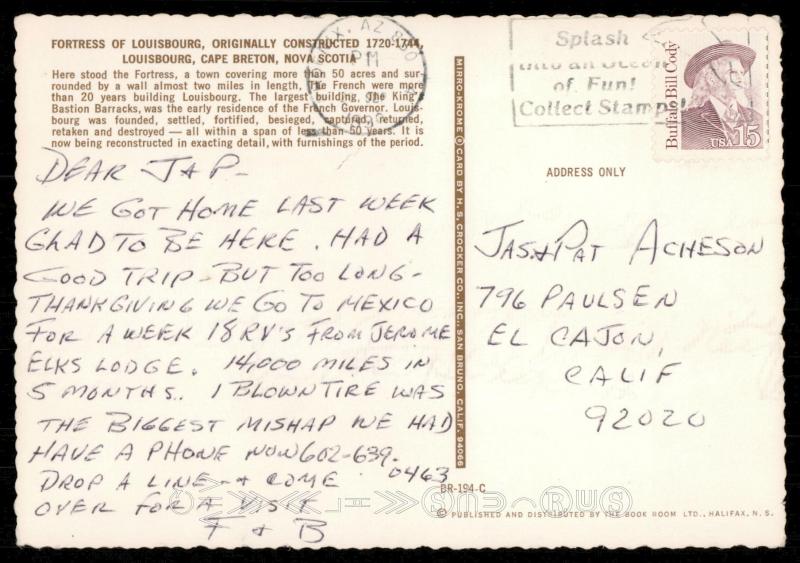 FORTRESS OF LOUISBOURG, ORIGINALLY CONSTRUCTED 1720-1744,
LOUISBOURG, CAPE BRETON, NOVA SCOTIA
Here stood the Fortress, a town covering more than 50 acres and sur-
rounded by a wall almost two miles in length. The French were more
than 20 years building Louisbourg. The largest building, the King's
Bastion Barracks, was the early residence of the French Governor. Louis-
bourg was founded, settled, fortified, besieged, captured, returned,
retaken and destroyed — all within a span of less than 50 years. It is
now being reconstructed in exacting detail, with furnishings of the period.
DEAR J & P-
WE GOT HOME LAST WEEK
GLAD TO BE HERE. HAD A
GOOD TRIP - BUT TOO LONG-
THANKGIVING WE GO TO MEXICO
FOR A WEEK 18 RV'S FROM JEROME
ELKS LODGE. 14,000 MILES IN
5 MONTHS. 1 BLOWN TIRE WAS
THE BIGGEST MISHAP WE HAD
HAVE A PHONE NOW 602-639-
0463
DROP A LINE & COME
OVER FOR A VISIT
F & B
MIRRO-KROME ® CARD BY H. S. CROCKER CO., INC., SAN BRUNO, CALIF. 94066
AZ 850
PM
Splash
into an Ocean
of Fun!
Collect Stamps!
Buffalo Bill Cody
USA 15
ADDRESS ONLY
JAS & PAT ACHESON
796 PAULSEN
EL CAJON,
CALIF
92020
BR-194-C
© PUBLISHED AND DISTRIBUTED BY THE BOOK ROOM LTD., HALIFAX, N. S.